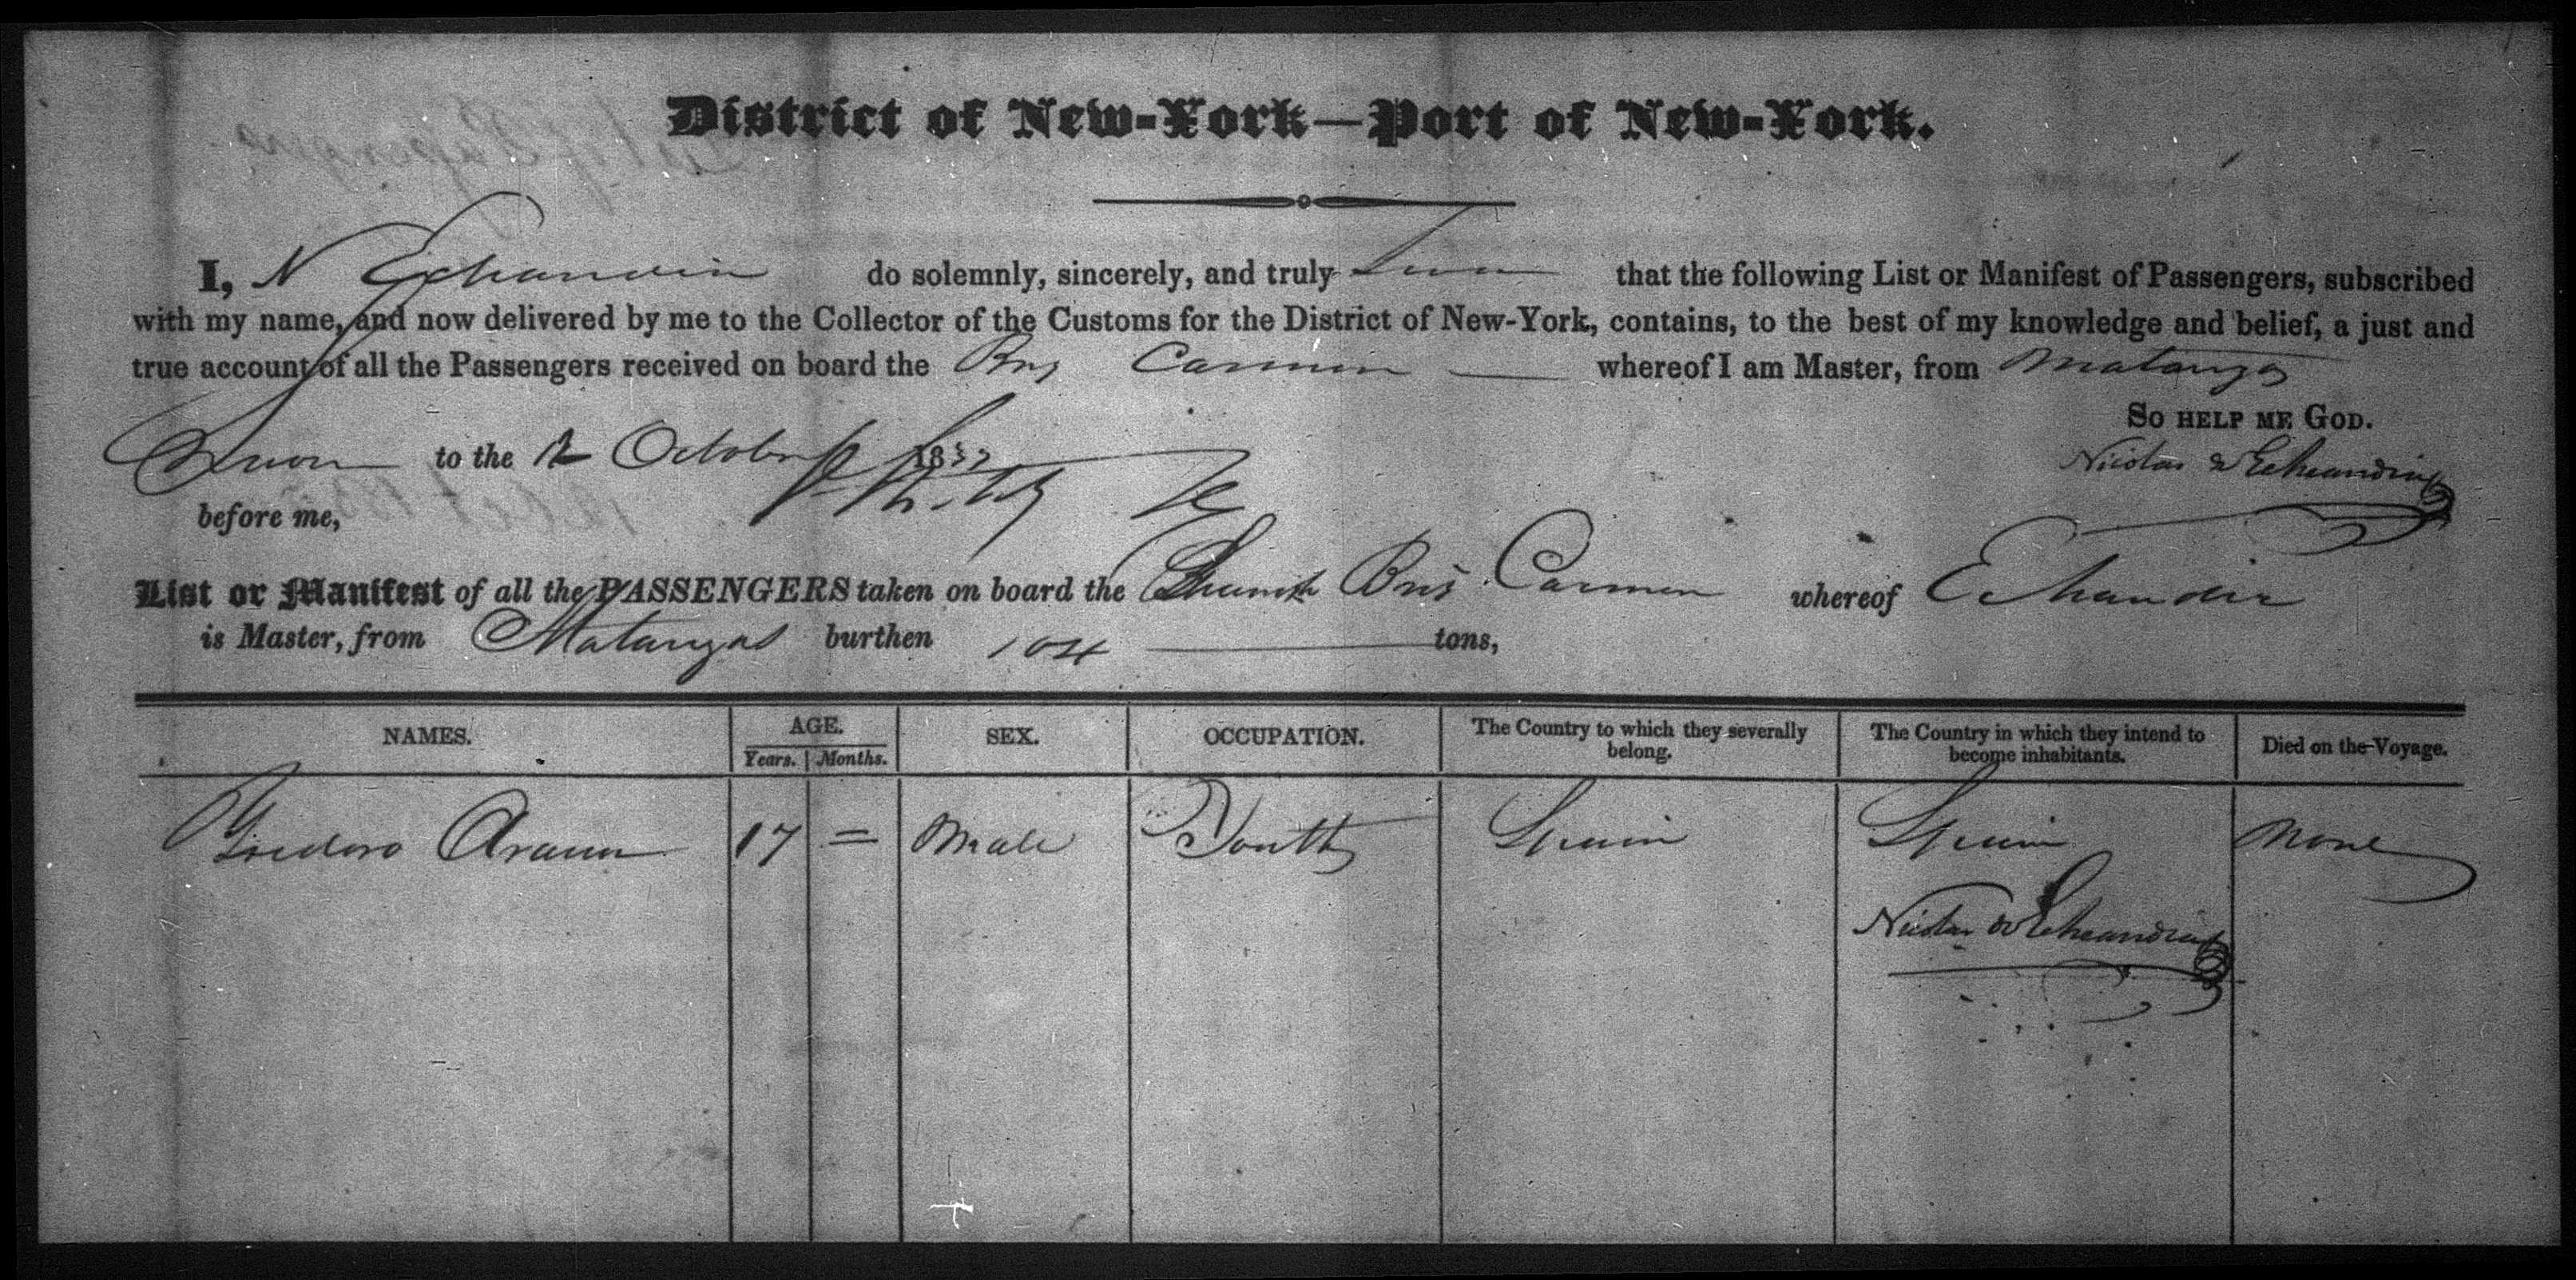 District of New-York—Port of New-York.
I, N Echeandia do solemnly, sincerely, and truly Swear that the following List or Manifest of Passengers, subscribed
with my name, and now delivered by me to the Collector of the Customs for the District of New-York, contains, to the best of my knowledge and belief, a just and
true account of all the Passengers received on board the Brig Carmen whereof I am Master, from Matanzas
So help me God.
Sworn to the 12 October 1852
Nicolas de Echeandia
before me,
List or Manifest of all the PASSENGERS taken on board the Spanish Brig Carmen whereof Echandia
is Master, from Matanzas burthen 104 tons,
NAMES. AGE. Years. Months. SEX. OCCUPATION. The Country to which they severally belong. The Country in which they intend to become inhabitants. Died on the Voyage.
17 = Male Youth Spain Spain None
Nicolas de Echeandia